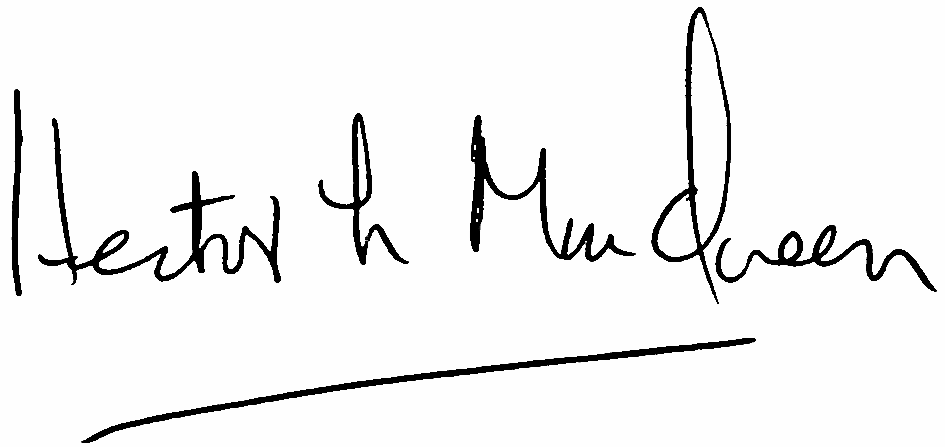 Hector L MacQueen